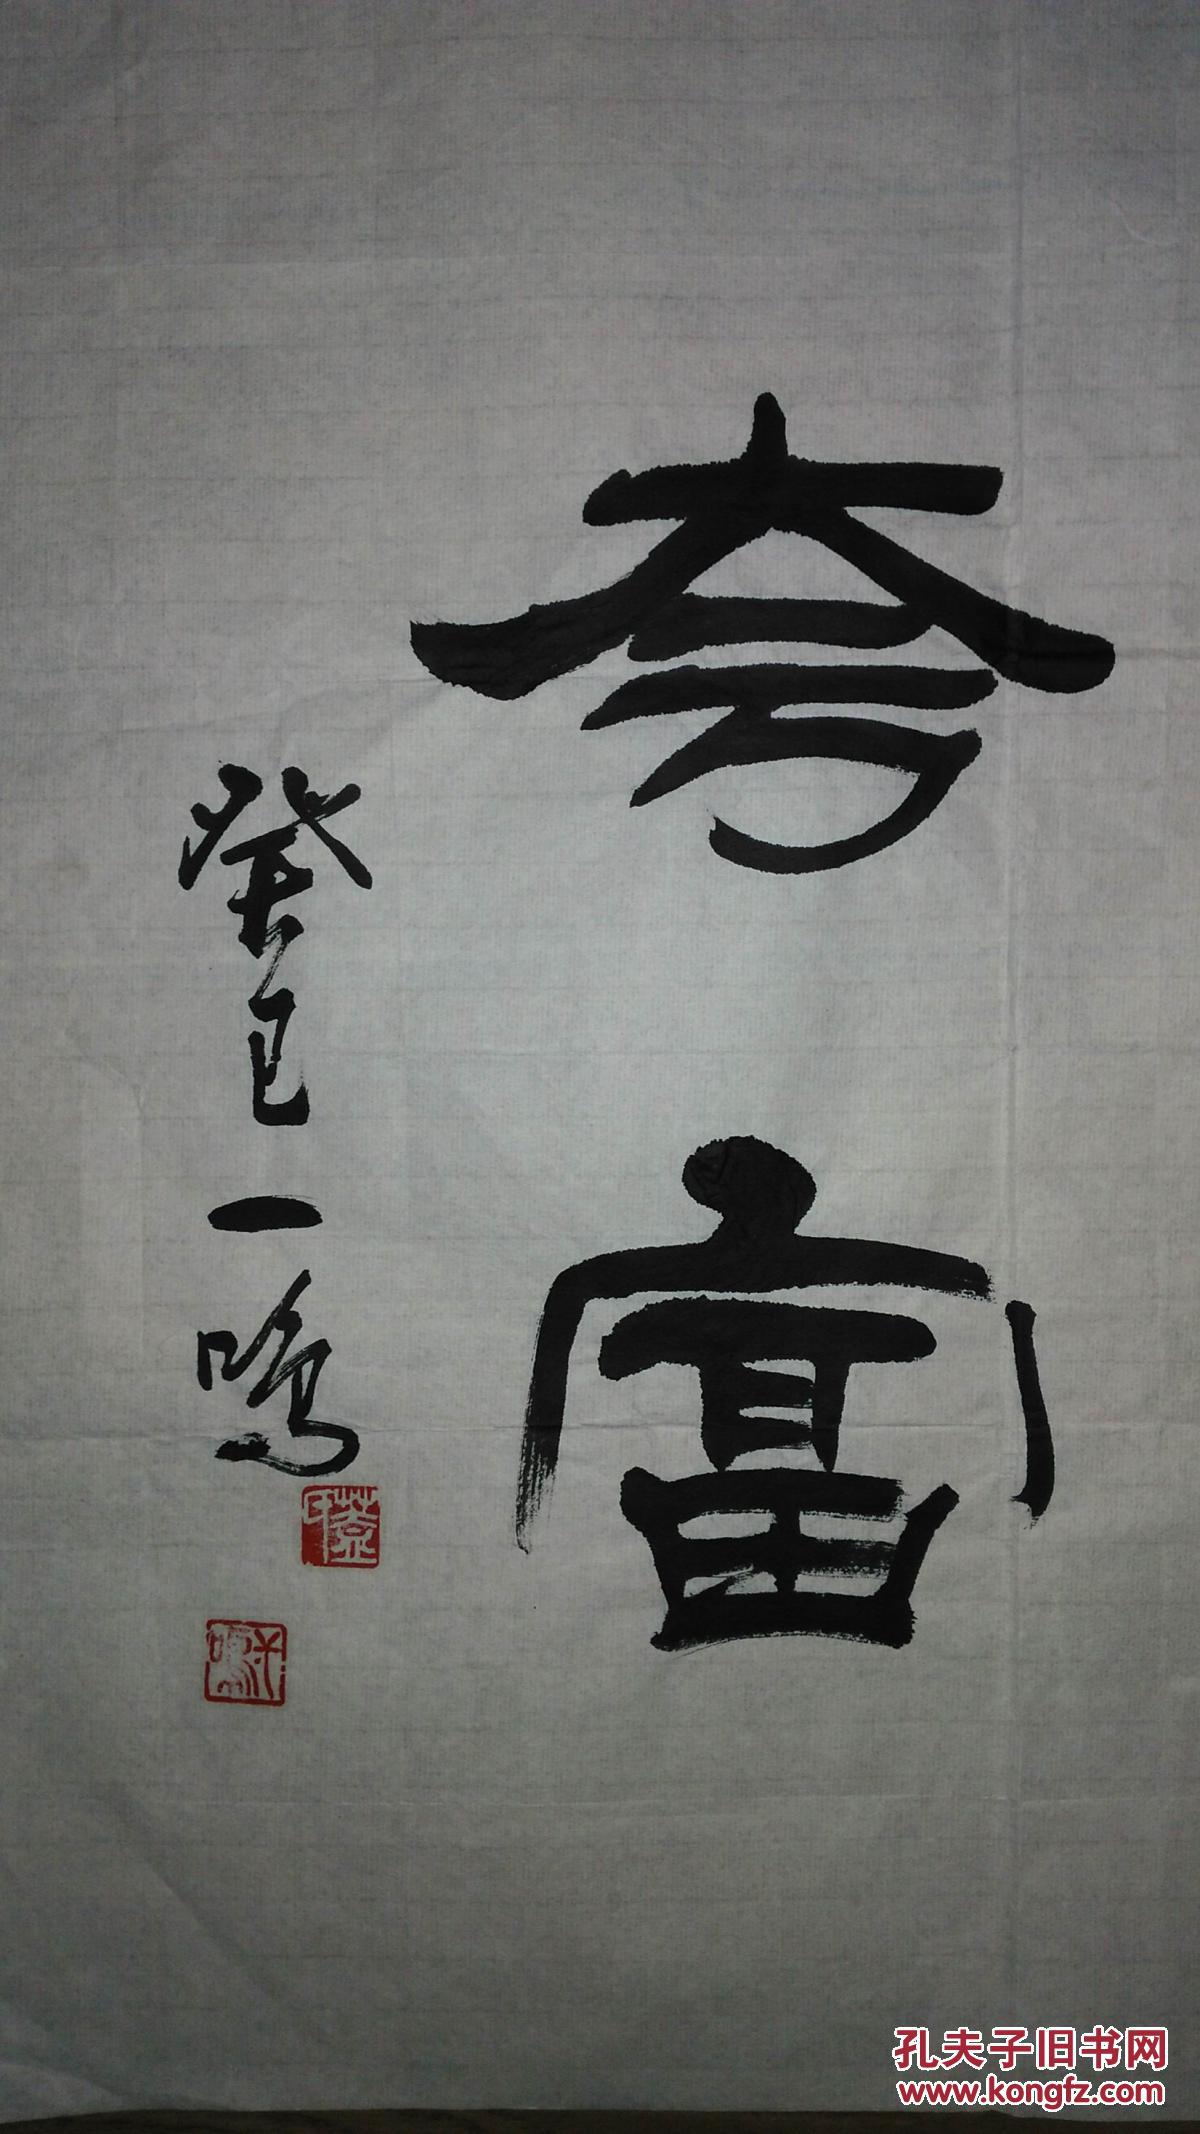 夸富
癸巳一鸣
孔夫子旧书网
www.kongfz.com